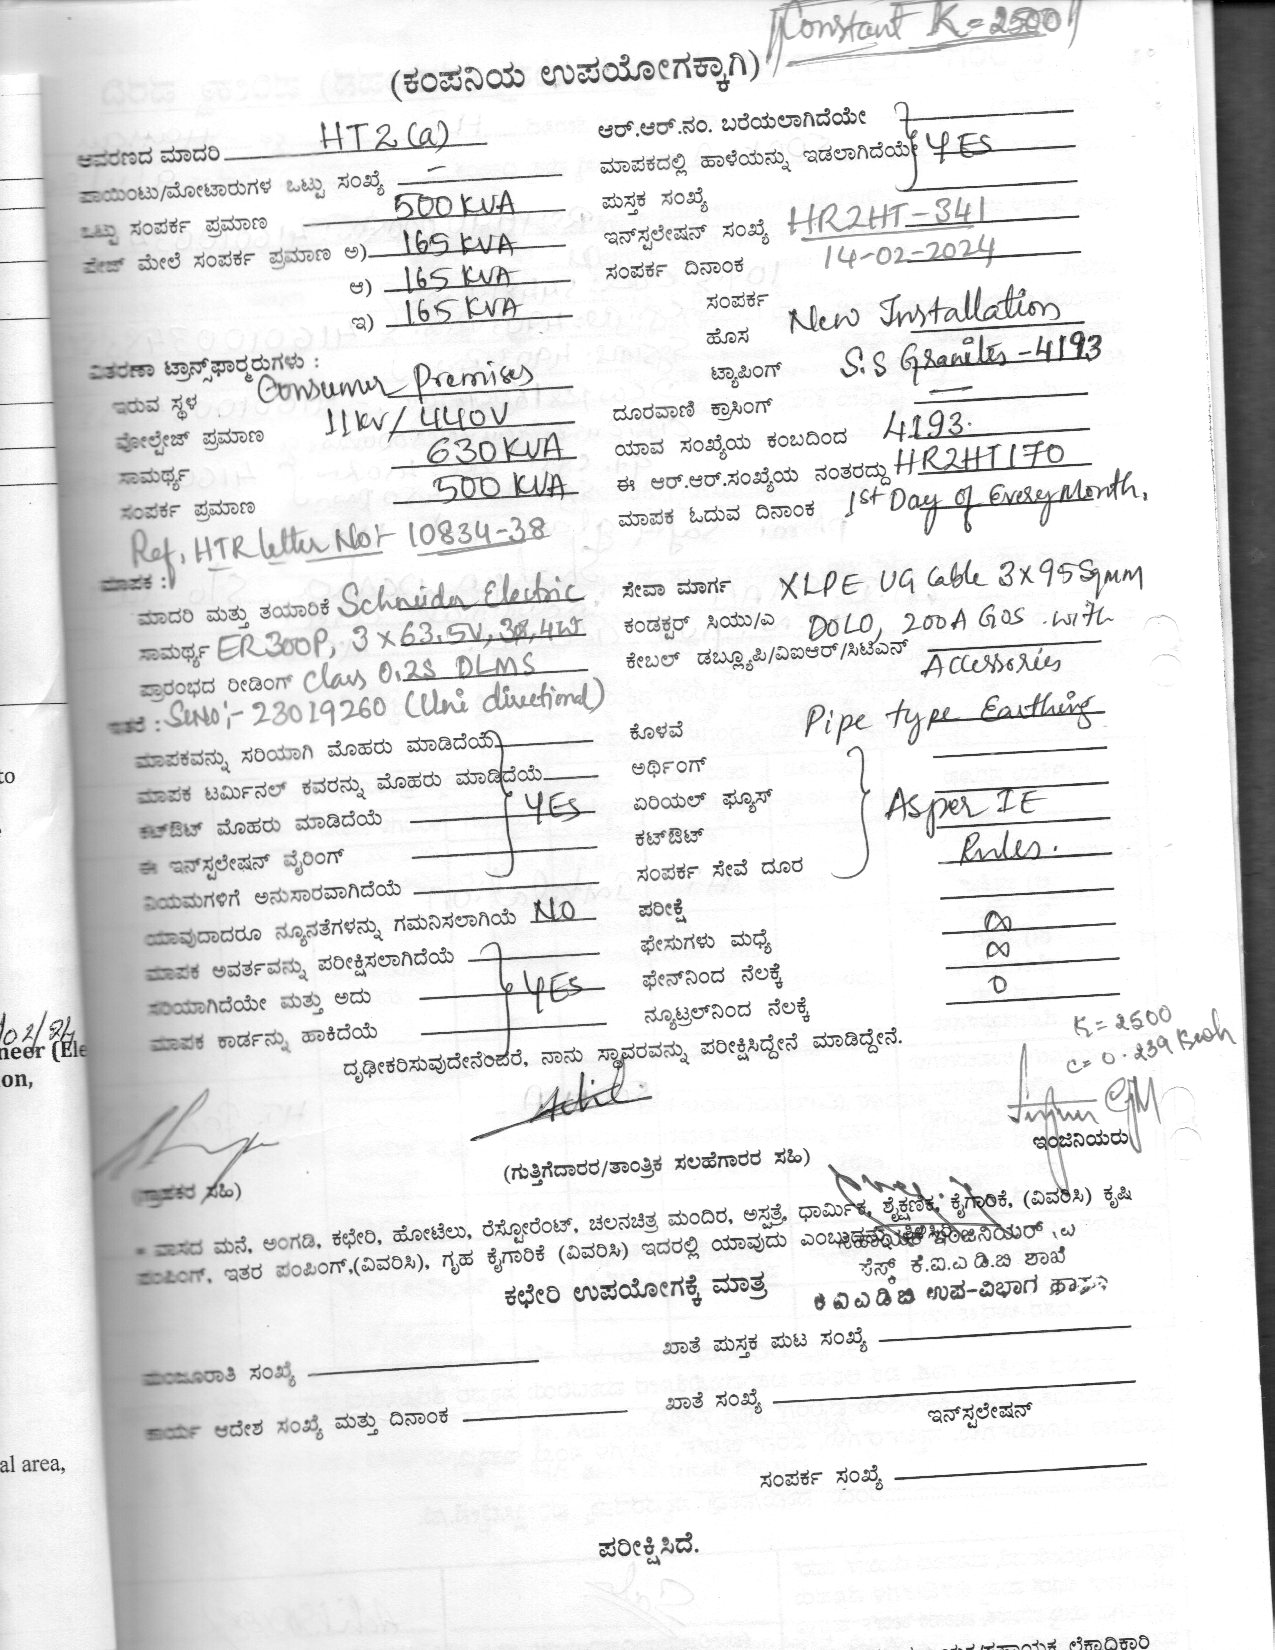 Constant K=2500
(ಕಂಪನಿಯ ಉಪಯೋಗಕ್ಕಾಗಿ)
ಆವರಣದ ಮಾದರಿ HT2(a)
ಪಾಯಿಂಟು/ಮೋಟಾರುಗಳ ಒಟ್ಟು ಸಂಖ್ಯೆ —
ಒಟ್ಟು ಸಂಪರ್ಕ ಪ್ರಮಾಣ 500KVA
ಪೇಜ್ ಮೇಲೆ ಸಂಪರ್ಕ ಪ್ರಮಾಣ ಅ) 165KVA
ಆ) 165KVA
ಇ) 165KVA
ವಿತರಣಾ ಟ್ರಾನ್ಸ್‌ಫಾರ್ಮರುಗಳು :
ಇರುವ ಸ್ಥಳ Consumer Premises
ವೋಲ್ಟೇಜ್ ಪ್ರಮಾಣ 11kv/440V
ಸಾಮರ್ಥ್ಯ 630KVA
ಸಂಪರ್ಕ ಪ್ರಮಾಣ 500KVA
Ref, HTR letter No:- 10834-38
ಮಾಪಕ :
ಮಾದರಿ ಮತ್ತು ತಯಾರಿಕೆ Schneider Electric
ಸಾಮರ್ಥ್ಯ ER300P, 3x63.5V, 3ø, 4W
ಪ್ರಾರಂಭದ ರೀಡಿಂಗ್ Class 0.2S DLMS
ಇತರೆ : Sr.No:- 23019260 (Uni directional)
ಮಾಪಕವನ್ನು ಸರಿಯಾಗಿ ಮೊಹರು ಮಾಡಿದೆಯೆ
ಮಾಪಕ ಟರ್ಮಿನಲ್ ಕವರನ್ನು ಮೊಹರು ಮಾಡಿದೆಯೆ
ಕಟ್‌ಔಟ್ ಮೊಹರು ಮಾಡಿದೆಯೆ YES
ಈ ಇನ್‌ಸ್ಪಲೇಷನ್ ವೈರಿಂಗ್
ನಿಯಮಗಳಿಗೆ ಅನುಸಾರವಾಗಿದೆಯೆ
ಯಾವುದಾದರೂ ನ್ಯೂನತೆಗಳನ್ನು ಗಮನಿಸಲಾಗಿಯೆ NO
ಮಾಪಕ ಅವರ್ತವನ್ನು ಪರೀಕ್ಷಿಸಲಾಗಿದೆಯೆ
ಸರಿಯಾಗಿದೆಯೇ ಮತ್ತು ಅದು YES
ಮಾಪಕ ಕಾರ್ಡನ್ನು ಹಾಕಿದೆಯೆ
ಆರ್.ಆರ್.ನಂ. ಬರೆಯಲಾಗಿದೆಯೇ
ಮಾಪಕದಲ್ಲಿ ಹಾಳೆಯನ್ನು ಇಡಲಾಗಿದೆಯೆ YES
ಪುಸ್ತಕ ಸಂಖ್ಯೆ
ಇನ್‌ಸ್ಪಲೇಷನ್ ಸಂಖ್ಯೆ HR2HT-341
ಸಂಪರ್ಕ ದಿನಾಂಕ 14-02-2024
ಸಂಪರ್ಕ
ಹೊಸ New Installation
ಟ್ಯಾಪಿಂಗ್ S.S Granites-4193
ದೂರವಾಣಿ ಕ್ರಾಸಿಂಗ್ —
ಯಾವ ಸಂಖ್ಯೆಯ ಕಂಬದಿಂದ 4193.
ಈ ಆರ್.ಆರ್.ಸಂಖ್ಯೆಯ ನಂತರದ್ದು HR2HT170
ಮಾಪಕ ಓದುವ ದಿನಾಂಕ 1st Day of Every Month,
ಸೇವಾ ಮಾರ್ಗ XLPE UG Cable 3x95Sqmm
ಕಂಡಕ್ಟರ್ ಸಿಯು/ಎ DOLO, 200A GOS with
ಕೇಬಲ್ ಡಬ್ಲ್ಯೂಪಿ/ವಿಐಆರ್/ಸಿಟಿಎಸ್ Accessories
ಕೊಳವೆ Pipe type Earthing
ಅರ್ಥಿಂಗ್
ಏರಿಯಲ್ ಫ್ಯೂಸ್ As per IE
ಕಟ್‌ಔಟ್ Rules.
ಸಂಪರ್ಕ ಸೇವೆ ದೂರ
ಪರೀಕ್ಷೆ
ಫೇಸುಗಳು ಮಧ್ಯೆ ∞
ಫೇಸ್‌ನಿಂದ ನೆಲಕ್ಕೆ ∞
ನ್ಯೂಟ್ರಲ್‌ನಿಂದ ನೆಲಕ್ಕೆ 0
K=2500
C=0.239 Kwh
ದೃಢೀಕರಿಸುವುದೇನೆಂದರೆ, ನಾನು ಸ್ಥಾವರವನ್ನು ಪರೀಕ್ಷಿಸಿದ್ದೇನೆ ಮಾಡಿದ್ದೇನೆ.
(ಗ್ರಾಹಕರ ಸಹಿ)
(ಗುತ್ತಿಗೆದಾರರ/ತಾಂತ್ರಿಕ ಸಲಹೆಗಾರರ ಸಹಿ)
ಇಂಜಿನಿಯರು
* ವಾಸದ ಮನೆ, ಅಂಗಡಿ, ಕಛೇರಿ, ಹೋಟೆಲು, ರೆಸ್ಟೋರೆಂಟ್, ಚಲನಚಿತ್ರ ಮಂದಿರ, ಅಸ್ಪತ್ರೆ, ಧಾರ್ಮಿಕ, ಶೈಕ್ಷಣಿಕ, ಕೈಗಾರಿಕೆ, (ವಿವರಿಸಿ) ಕೃಷಿ
ಪಂಪಿಂಗ್, ಇತರ ಪಂಪಿಂಗ್,(ವಿವರಿಸಿ), ಗೃಹ ಕೈಗಾರಿಕೆ (ವಿವರಿಸಿ) ಇದರಲ್ಲಿ ಯಾವುದು ಎಂಬುದನ್ನು ತಿಳಿಸಿರಿ
ಸಹಾಯಕ ಇಂಜಿನಿಯರ್
ಸೆಸ್ಕ್ ಕೆ.ಐ.ಎ ಡಿ.ಬಿ ಶಾಖೆ
ಕೆ ಐ ಎ ಡಿ ಬಿ ಉಪ-ವಿಭಾಗ ಹಾಸನ
ಕಛೇರಿ ಉಪಯೋಗಕ್ಕೆ ಮಾತ್ರ
ಖಾತೆ ಪುಸ್ತಕ ಪುಟ ಸಂಖ್ಯೆ
ಮಂಜೂರಾತಿ ಸಂಖ್ಯೆ
ಖಾತೆ ಸಂಖ್ಯೆ
ಕಾರ್ಯ ಆದೇಶ ಸಂಖ್ಯೆ ಮತ್ತು ದಿನಾಂಕ
ಇನ್‌ಸ್ಪಲೇಷನ್
ಸಂಪರ್ಕ ಸಂಖ್ಯೆ
ಪರೀಕ್ಷಿಸಿದೆ.
to
02/24
neer (Ele
on,
al area,